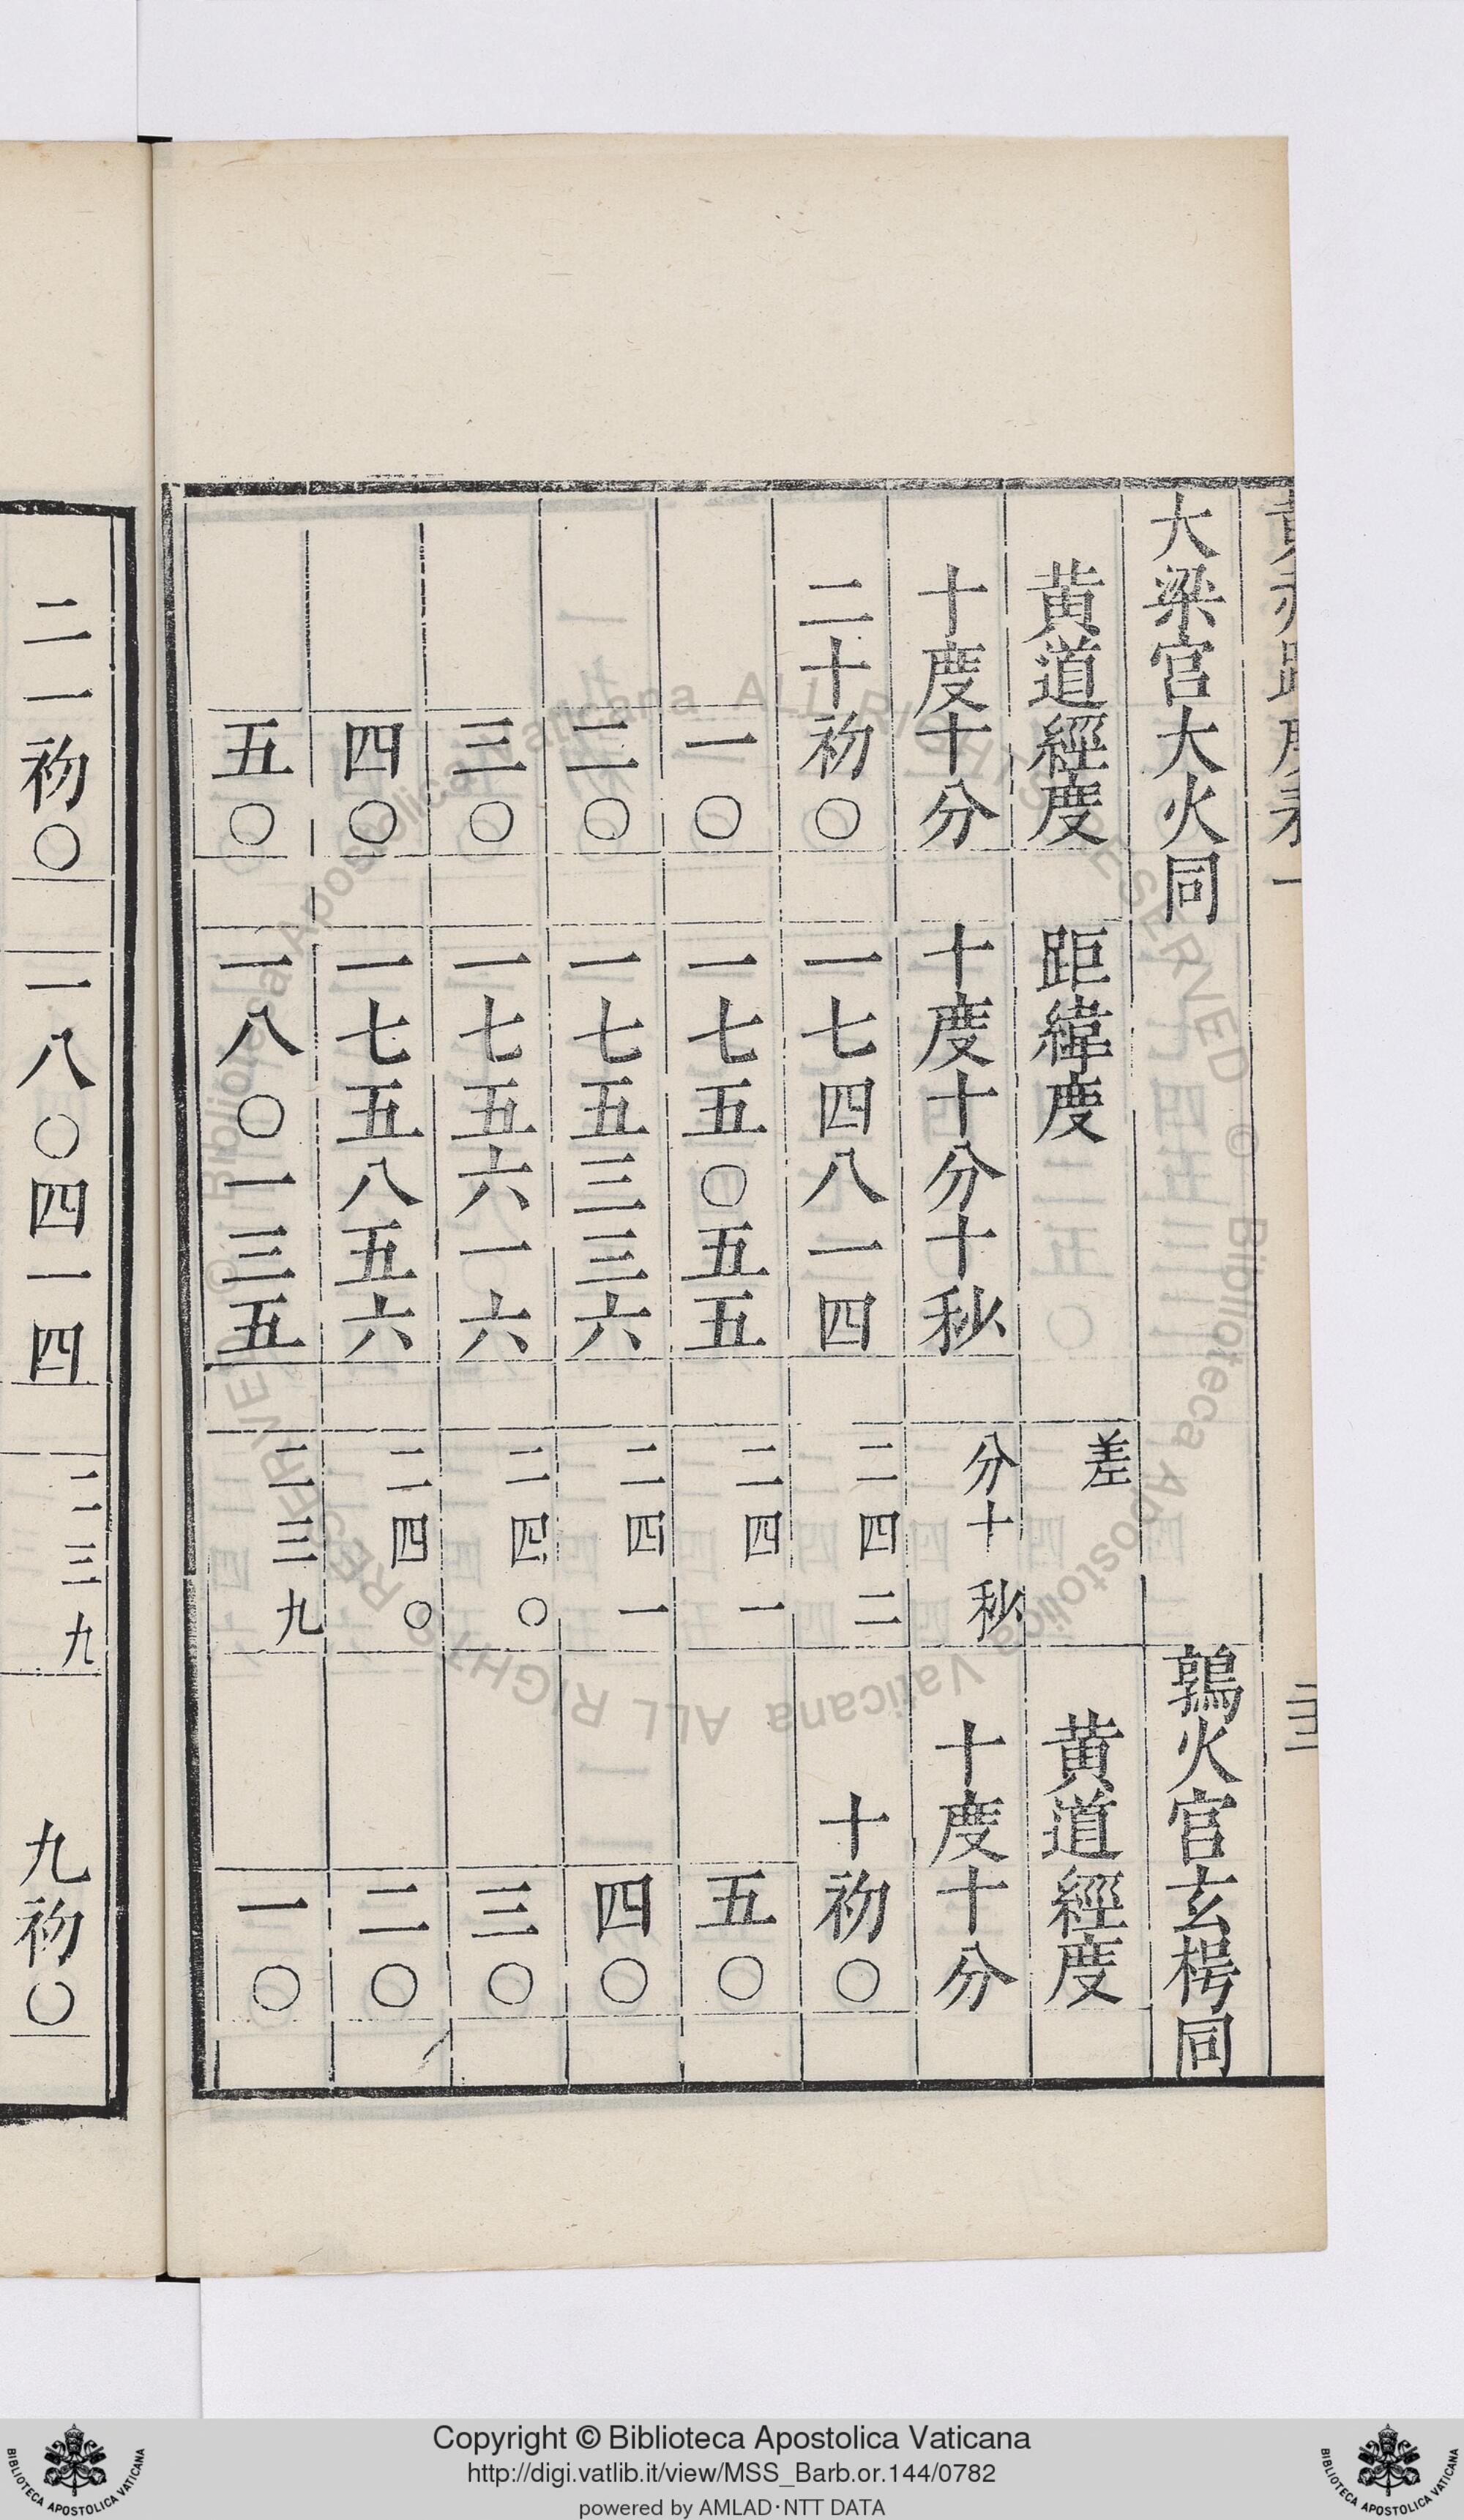 大梁宫大火同 鶉火宫玄枵同
黄道經度 距緯度 差 黄道經度
十度十分 十度十分十秒 分十秒 十度十分
二十初〇 一七四八一四 二四二 十初〇
一〇 一七五〇五五 二四一 五〇
二〇 一七五三三六 二四一 四〇
三〇 一七五六一六 二四〇 三〇
四〇 一七五八五六 二四〇 二〇
五〇 一八〇一三五 二三九 一〇
二一初〇 一八〇四一四 二三九 九初〇
© Biblioteca Apostolica Vaticana ALL RIGHTS RESERVED © Biblioteca Apostolica Vaticana ALL RIGHTS RESERVED
Copyright © Biblioteca Apostolica Vaticana
http://digi.vatlib.it/view/MSS_Barb.or.144/0782
powered by AMLAD·NTT DATA
BIBLIOTECA APOSTOLICA VATICANA
BIBLIOTECA APOSTOLICA VATICANA